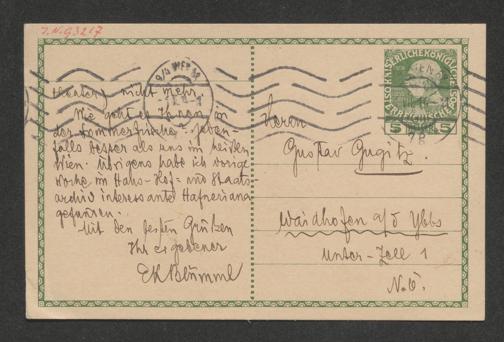 J.N. 93217
theaters nicht mehr.
Wie geht es Ihnen in
der Sommerfrische? Jeden-
falls besser als uns im heißen
Wien. Übrigens habe ich vorige
Woche im Haus- Hof- und Staats-
archiv interessante Hafneriana
gefunden.
Mit den besten Grüßen
Ihr ergebener
EKBlümml
Herrn
Gustav Gugitz
Waidhofen a/d Ybbs
Unter-Zell 1
N.Ö.
5 5